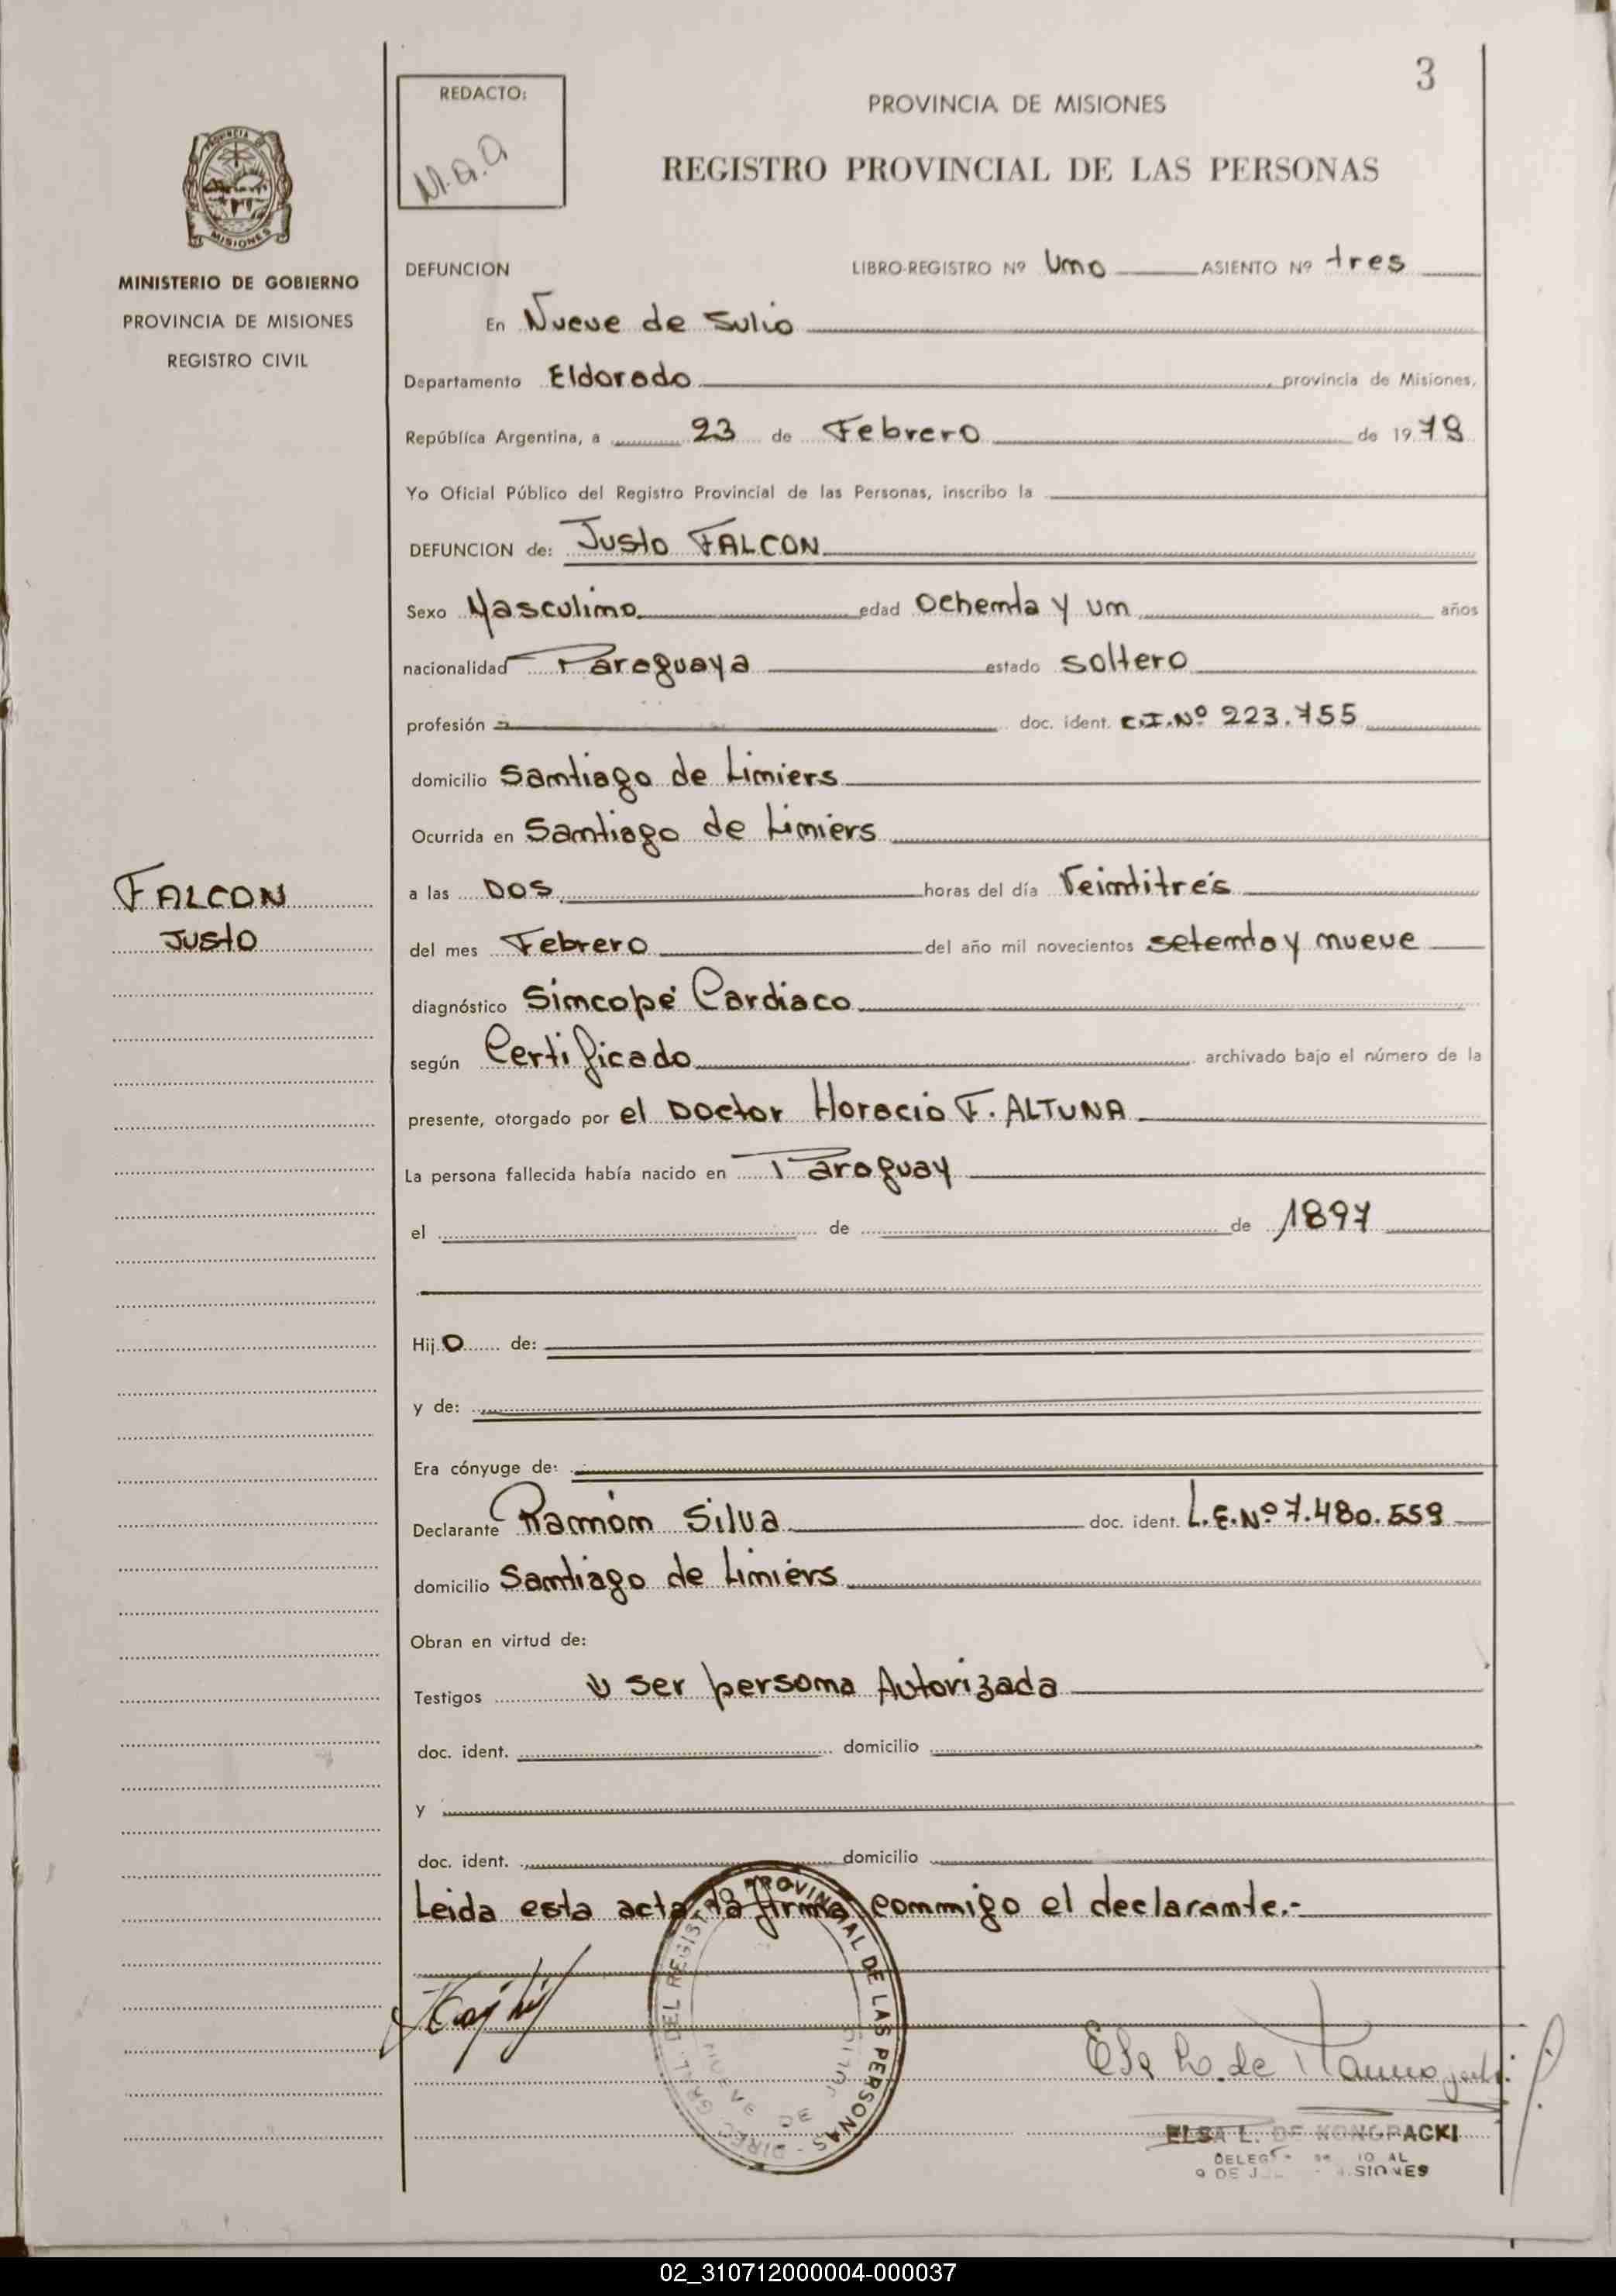 3
REDACTO:
M.a.a
PROVINCIA DE MISIONES
REGISTRO PROVINCIAL DE LAS PERSONAS
PROVINCIA DE
MISIONES
MINISTERIO DE GOBIERNO
PROVINCIA DE MISIONES
REGISTRO CIVIL
DEFUNCION LIBRO-REGISTRO Nº Uno ASIENTO Nº tres
En Nueve de Julio
Departamento Eldorado provincia de Misiones,
República Argentina, a 23 de Febrero de 1979
Yo Oficial Público del Registro Provincial de las Personas, inscribo la
DEFUNCION de: Justo FALCON
Sexo Masculino edad Ochenta y un años
nacionalidad Paraguaya estado soltero
profesión doc. ident. C.I.Nº 223.755
domicilio Santiago de Liniers
Ocurrida en Santiago de Liniers
FALCON
Justo
a las Dos horas del día Veintitrés
del mes Febrero del año mil novecientos setenta y nueve
diagnóstico Sincopé Cardiaco
según Certificado archivado bajo el número de la
presente, otorgado por el Doctor Horacio F. ALTUNA
La persona fallecida había nacido en Paraguay
el de de 1897
Hijo de:
y de:
Era cónyuge de:
Declarante Ramón Silva doc. ident. L.E.Nº 7.480.559
domicilio Santiago de Liniers
Obran en virtud de:
Testigos ser persona Autorizada
doc. ident. domicilio
y
doc. ident. domicilio
Leida esta acta, la firma conmigo el declarante.-
DIREC. GRAL. DEL REGIST. PROVINCIAL DE LAS PERSONAS
NUEVE DE JULIO
ELSA L. DE KONGRACKI
9 DE J MISIONES
02_310712000004-000037